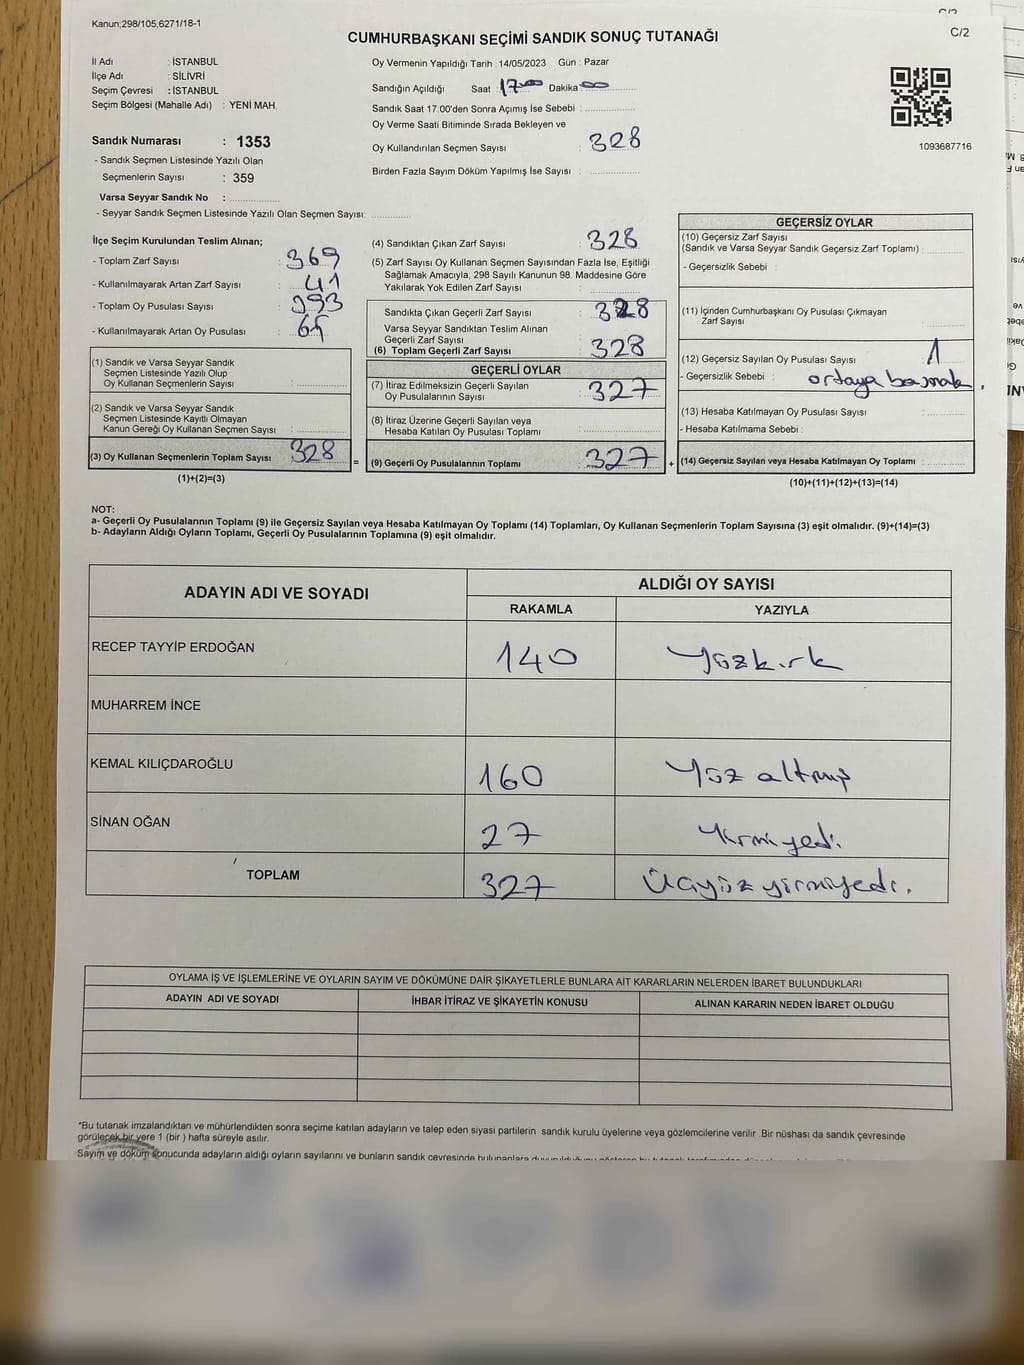 Kanun;298/105;6271/18-1
C/2
CUMHURBAŞKANI SEÇİMİ SANDIK SONUÇ TUTANAĞI
İl Adı : İSTANBUL
İlçe Adı : SİLİVRİ
Seçim Çevresi : İSTANBUL
Seçim Bölgesi (Mahalle Adı) : YENİ MAH.
Sandık Numarası : 1353
- Sandık Seçmen Listesinde Yazılı Olan
Seçmenlerin Sayısı : 359
Varsa Seyyar Sandık No :
- Seyyar Sandık Seçmen Listesinde Yazılı Olan Seçmen Sayısı:
Oy Vermenin Yapıldığı Tarih : 14/05/2023 Gün : Pazar
Sandığın Açıldığı Saat : 17:00 Dakika : 00
Sandık Saat 17.00'den Sonra Açımış İse Sebebi :
Oy Verme Saati Bitiminde Sırada Bekleyen ve
Oy Kullandırılan Seçmen Sayısı : 328
Birden Fazla Sayım Döküm Yapılmış İse Sayısı :
1093687716
İlçe Seçim Kurulundan Teslim Alınan;
- Toplam Zarf Sayısı : 369
- Kullanılmayarak Artan Zarf Sayısı : 41
- Toplam Oy Pusulası Sayısı : 393
- Kullanılmayarak Artan Oy Pusulası :
(1) Sandık ve Varsa Seyyar Sandık
Seçmen Listesinde Yazılı Olup
Oy Kullanan Seçmenlerin Sayısı :
(2) Sandık ve Varsa Seyyar Sandık
Seçmen Listesinde Kayıtlı Olmayan
Kanun Gereği Oy Kullanan Seçmen Sayısı :
(3) Oy Kullanan Seçmenlerin Toplam Sayısı 328 =
(1)+(2)=(3)
(4) Sandıktan Çıkan Zarf Sayısı : 328
(5) Zarf Sayısı Oy Kullanan Seçmen Sayısından Fazla İse, Eşitliği
Sağlamak Amacıyla; 298 Sayılı Kanunun 98. Maddesine Göre
Yakılarak Yok Edilen Zarf Sayısı :
Sandıkta Çıkan Geçerli Zarf Sayısı : 328
Varsa Seyyar Sandıktan Teslim Alınan
Geçerli Zarf Sayısı :
(6) Toplam Geçerli Zarf Sayısı : 328
GEÇERLİ OYLAR
(7) İtiraz Edilmeksizin Geçerli Sayılan
Oy Pusulalarının Sayısı : 327
(8) İtiraz Üzerine Geçerli Sayılan veya
Hesaba Katılan Oy Pusulası Toplamı :
(9) Geçerli Oy Pusulalarının Toplamı : 327 +
GEÇERSİZ OYLAR
(10) Geçersiz Zarf Sayısı
(Sandık ve Varsa Seyyar Sandık Geçersiz Zarf Toplamı) :
- Geçersizlik Sebebi :
(11) İçinden Cumhurbaşkanı Oy Pusulası Çıkmayan
Zarf Sayısı :
(12) Geçersiz Sayılan Oy Pusulası Sayısı : 1
- Geçersizlik Sebebi : ortaya basmak.
(13) Hesaba Katılmayan Oy Pusulası Sayısı :
- Hesaba Katılmama Sebebi :
(14) Geçersiz Sayılan veya Hesaba Katılmayan Oy Toplamı :
(10)+(11)+(12)+(13)=(14)
NOT:
a- Geçerli Oy Pusulalarının Toplamı (9) ile Geçersiz Sayılan veya Hesaba Katılmayan Oy Toplamı (14) Toplamları, Oy Kullanan Seçmenlerin Toplam Sayısına (3) eşit olmalıdır. (9)+(14)=(3)
b- Adayların Aldığı Oyların Toplamı, Geçerli Oy Pusulalarının Toplamına (9) eşit olmalıdır.
ADAYIN ADI VE SOYADI
ALDIĞI OY SAYISI
RAKAMLA YAZIYLA
RECEP TAYYİP ERDOĞAN 140 Yüzkırk
MUHARREM İNCE
KEMAL KILIÇDAROĞLU 160 Yüz altmış
SİNAN OĞAN 27 Yirmiyedi
TOPLAM 327 Üçyüzyirmiyedi.
OYLAMA İŞ VE İŞLEMLERİNE VE OYLARIN SAYIM VE DÖKÜMÜNE DAİR ŞİKAYETLERLE BUNLARA AİT KARARLARIN NELERDEN İBARET BULUNDUKLARI
ADAYIN ADI VE SOYADI İHBAR İTİRAZ VE ŞİKAYETİN KONUSU ALINAN KARARIN NEDEN İBARET OLDUĞU
*Bu tutanak imzalandıktan ve mühürlendikten sonra seçime katılan adayların ve talep eden siyasi partilerin sandık kurulu üyelerine veya gözlemcilerine verilir .Bir nüshası da sandık çevresinde
görülecek bir yere 1 (bir ) hafta süreyle asılır.
Sayım ve döküm sonucunda adayların aldığı oyların sayılarını ve bunların sandık çevresinde bulunanlara